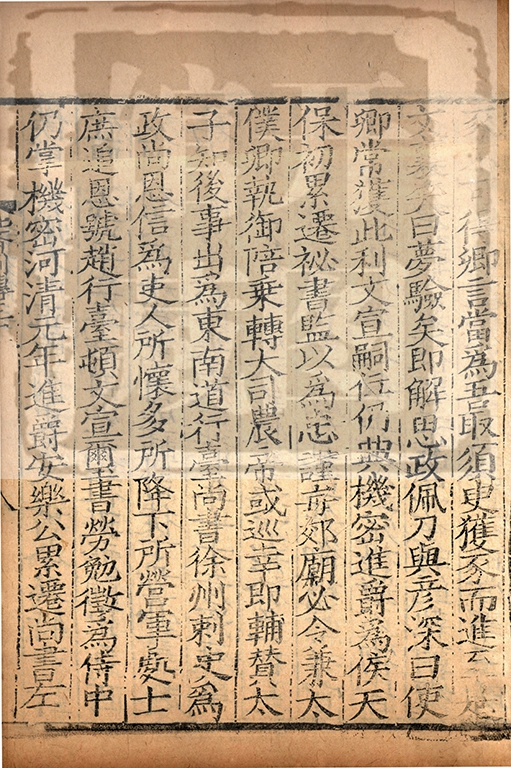 得卿言當為吾取須臾獲豕而進至是
文襄笑曰夢驗矣即解思政佩刀與彦深曰使
卿常獲此利文宣嗣位仍典機密進爵為侯天
保初累遷祕書監以為忠謹每郊廟必令兼太
僕卿執御陪乗轉大司農帝或巡幸即輔賛太
子知後事出為東南道行臺尚書徐州刺史為
政尚恩信為吏人所懷多所降下所營軍處士
庶追恩號趙行臺頓文宣璽書勞勉徵為侍中
仍掌機密河清元年進爵安樂公累遷尚書左